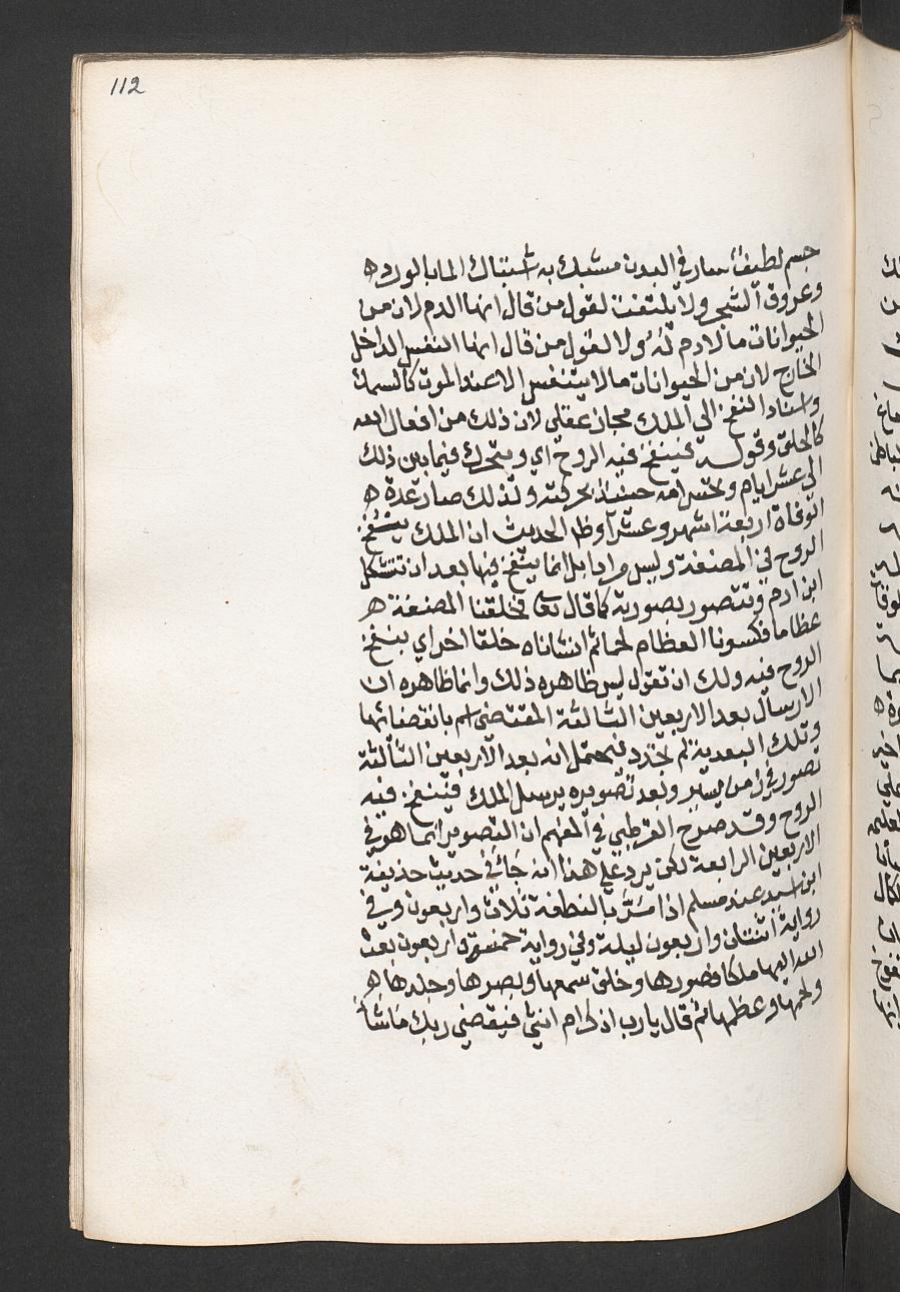 112
جسم لطيف سار في البدن مشتبك به اشتباك الما بالورد ه
وعروق الشجر ولا يلتفت لقول من قال انها الدم لان من
الحيوانات ما لا دم له ولا لقول من قال انها النفس الداخل
الخارج لان من الحيوانات ما لا يتنفس الا عند الموت كالسمك
واسناد النفخ الى الملك مجاز عقلي لان ذلك من افعال الله
كالخلق وقوله فينفخ فيه الروح اي ويتحرك فيما بين ذلك
الى عشر ايام وتحس امه حينئذ بحركته ولذلك صار عدة ه
الوفاة اربعة اشهر وعشرا وظ الحديث ان الملك ينفخ
الروح في المضغة وليس مرادا بل انما ينفخ فيها بعد ان تتشكل
ابن ادم وتتصور بصورته كما قال تعا فخلقنا المضغة ه
عظاما فكسونا العظام لحما ثم انشاناه خلقا اخر اي بنفخ
الروح فيه ولك ان تقول ليس ظاهره ذلك وانما ظاهره ان
الارسال بعد الاربعين الثالثة المقتضى اسم بانقضائها
وتلك البعدية لم تحدد فيحتمل انه بعد الاربعين الثالثة
تصور في زمن يسير وبعد تصويره يرسل الملك فينفخ فيه
الروح وقد صرح القرطبي في المفهم ان التصوير انما هو في
الاربعين الرابعة لكن يرد على هذا انه جاء في حديث حذيفة
ابن اسيد عند مسلم اذا مر بالنطفة ثلاث واربعون وفي
رواية اثنتان واربعون ليلة وفي رواية خمسة واربعون بعث
الله اليها ملكا فصورها وخلق سمعها وبصرها وجلدها ه
ولحمها وعظمها ثم قال يارب اذكر ام انثى فيقضي ربك ماشا